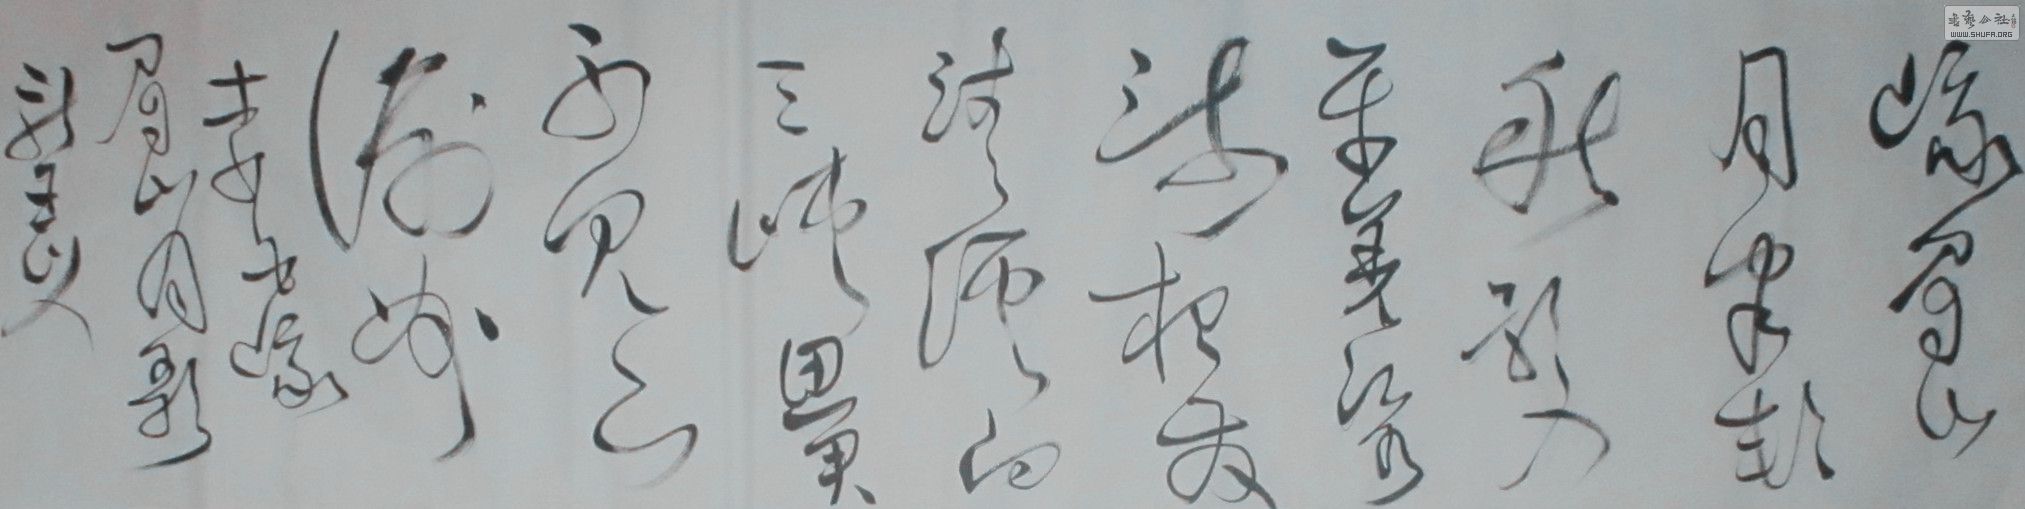 峨眉山
月半轮
秋影入
平羌江水
流夜发
清溪向
三峡思君
不见下
渝州
李白峨
眉山月歌
書藝公社
WWW.SHUFA.ORG